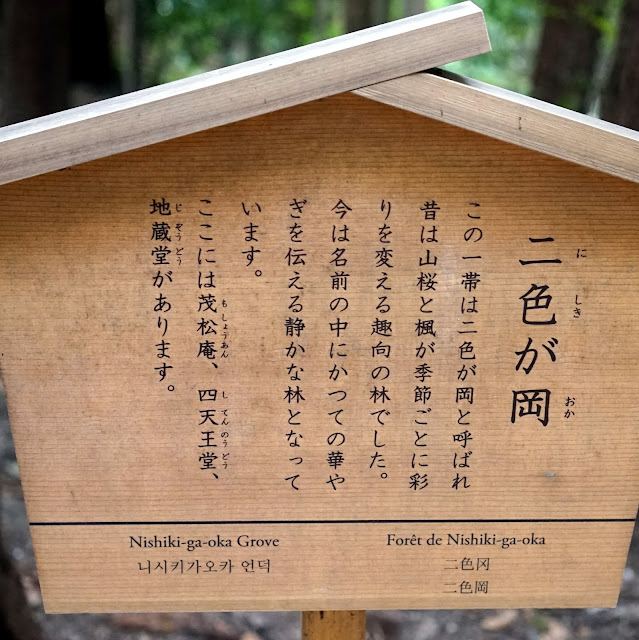 に しき おか
二色が岡
この一帯は二色が岡と呼ばれ
昔は山桜と楓が季節ごとに彩
りを変える趣向の林でした。
今は名前の中にかつての華や
ぎを伝える静かな林となって
います。
も しょうあん し てんのう どう
ここには茂松庵、四天王堂、
じ ぞう どう
地蔵堂があります。
Nishiki-ga-oka Grove
니시키가오카 언덕
Forêt de Nishiki-ga-oka
二色冈
二色岡